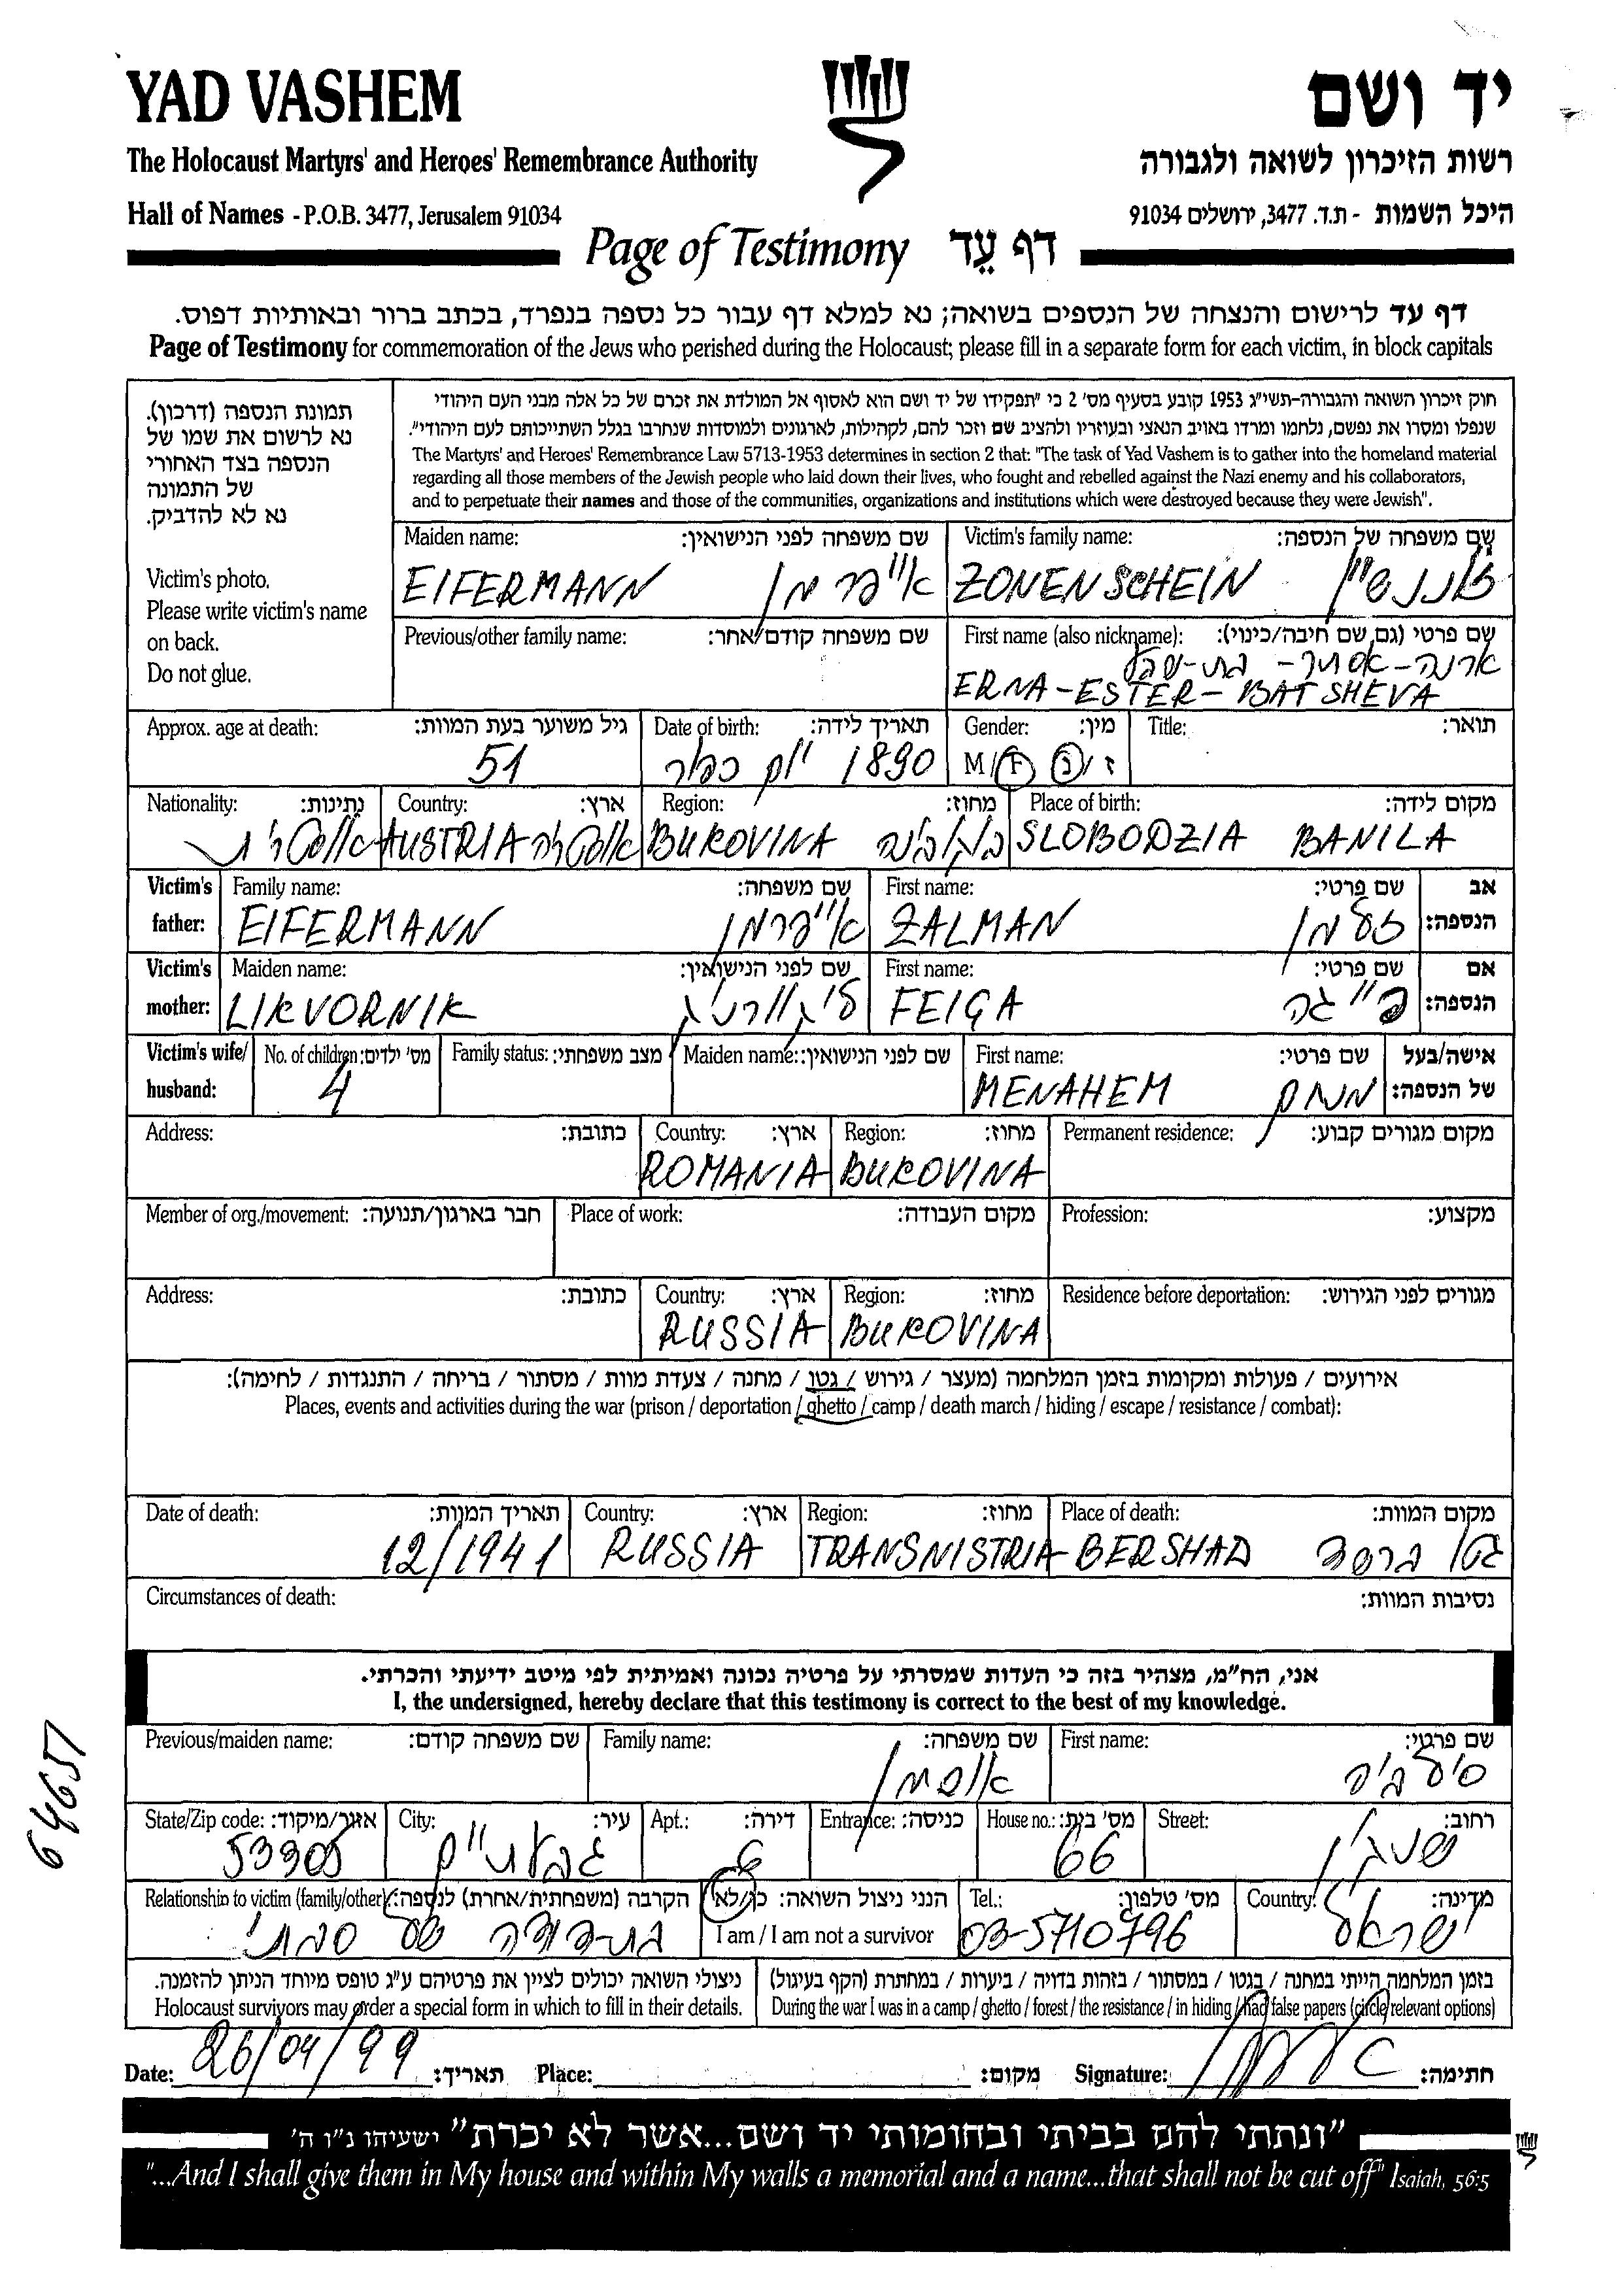 YAD VASHEM
יד ושם
The Holocaust Martyrs' and Heroes' Remembrance Authority
רשות הזיכרון לשואה ולגבורה
Hall of Names - P.O.B. 3477, Jerusalem 91034
היכל השמות - ת.ד. 3477, ירושלים 91034
Page of Testimony דף עֵד
דף עד לרישום והנצחה של הנספים בשואה; נא למלא דף עבור כל נספה בנפרד, בכתב ברור ובאותיות דפוס.
Page of Testimony for commemoration of the Jews who perished during the Holocaust; please fill in a separate form for each victim, in block capitals
תמונת הנספה (דרכון).
נא לרשום את שמו של
הנספה בצד האחורי
של התמונה
נא לא להדביק.
Victim's photo.
Please write victim's name
on back.
Do not glue.
חוק זיכרון השואה והגבורה-תשי"ג 1953 קובע בסעיף מס' 2 כי "תפקידו של יד ושם הוא לאסוף אל המולדת את זכרם של כל אלה מבני העם היהודי
שנפלו ומסרו את נפשם, נלחמו ומרדו באויב הנאצי ובעוזריו ולהציב שם וזכר להם, לקהילות, לארגונים ולמוסדות שנחרבו בגלל השתייכותם לעם היהודי".
The Martyrs' and Heroes' Remembrance Law 5713-1953 determines in section 2 that: "The task of Yad Vashem is to gather into the homeland material
regarding all those members of the Jewish people who laid down their lives, who fought and rebelled against the Nazi enemy and his collaborators,
and to perpetuate their names and those of the communities, organizations and institutions which were destroyed because they were Jewish".
Maiden name: שם משפחה לפני הנישואין:
EIFERMANN אייפרמן
Victim's family name: שם משפחה של הנספה:
ZONENSCHEIN זוננשיין
Previous/other family name: שם משפחה קודם/אחר:
First name (also nickname): שם פרטי (גם שם חיבה/כינוי):
ארנה-אסתר-בת-שבע
ERNA-ESTER-BAT SHEVA
Approx. age at death: גיל משוער בעת המוות:
51
Date of birth: תאריך לידה:
1890 יום כפור
Gender: מין:
M/F ז/נ
Title: תואר:
Nationality: נתינות:
אוסטרית
Country: ארץ:
AUSTRIA אוסטריה
Region: מחוז:
BUKOVINA בוקובינה
Place of birth: מקום לידה:
SLOBODZIA BANILA
Victim's father:
Family name: שם משפחה:
EIFERMANN אייפרמן
First name: שם פרטי:
ZALMAN זלמן
אב הנספה:
Victim's mother:
Maiden name: שם לפני הנישואין:
LIKVORNIK ליקוורניק
First name: שם פרטי:
FEIGA פייגה
אם הנספה:
Victim's wife/ husband:
No. of children: מס' ילדים:
4
Family status: מצב משפחתי:
Maiden name: שם לפני הנישואין:
First name: שם פרטי:
MENAHEM מנחם
אישה/בעל של הנספה:
Address: כתובת:
Country: ארץ:
ROMANIA
Region: מחוז:
BUKOVINA
Permanent residence: מקום מגורים קבוע:
Member of org./movement: חבר בארגון/תנועה:
Place of work: מקום העבודה:
Profession: מקצוע:
Address: כתובת:
Country: ארץ:
RUSSIA
Region: מחוז:
BUKOVINA
Residence before deportation: מגורים לפני הגירוש:
אירועים / פעולות ומקומות בזמן המלחמה (מעצר / גירוש / גטו / מחנה / צעדת מוות / מסתור / בריחה / התנגדות / לחימה):
Places, events and activities during the war (prison / deportation / ghetto / camp / death march / hiding / escape / resistance / combat):
Date of death: תאריך המוות:
12/1941
Country: ארץ:
RUSSIA
Region: מחוז:
TRANSNISTRIA
Place of death: מקום המוות:
BERSHAD גטו ברשד
Circumstances of death: נסיבות המוות:
אני, הח"מ, מצהיר בזה כי העדות שמסרתי על פרטיה נכונה ואמיתית לפי מיטב ידיעתי והכרתי.
I, the undersigned, hereby declare that this testimony is correct to the best of my knowledge.
Previous/maiden name: שם משפחה קודם:
Family name: שם משפחה:
אוסמן
First name: שם פרטי:
סילביה
State/Zip code: אזור/מיקוד:
53305
City: עיר:
גבעתיים
Apt.: דירה:
6
Entrance: כניסה:
House no.: מס' בית:
66
Street: רחוב:
שינקין
Relationship to victim (family/other): הקרבה (משפחתית/אחרת) לנספה:
בת-דודה של סבתי
הנני ניצול השואה: כן/לא
I am / I am not a survivor
Tel.: מס' טלפון:
03-5710796
Country: מדינה:
ישראל
ניצולי השואה יכולים לציין את פרטיהם ע"ג טופס מיוחד הניתן להזמנה.
Holocaust survivors may order a special form in which to fill in their details.
בזמן המלחמה הייתי במחנה / בגטו / במסתור / בזהות בדויה / ביערות / במחתרת (הקף בעיגול)
During the war I was in a camp / ghetto / forest / the resistance / in hiding / had false papers (circle relevant options)
Date: 26/04/99 תאריך: Place: מקום: Signature: חתימה:
"ונתתי להם בביתי ובחומותי יד ושם...אשר לא יכרת" ישעיהו נ"ו ה'
"...And I shall give them in My house and within My walls a memorial and a name...that shall not be cut off" Isaiah, 56:5